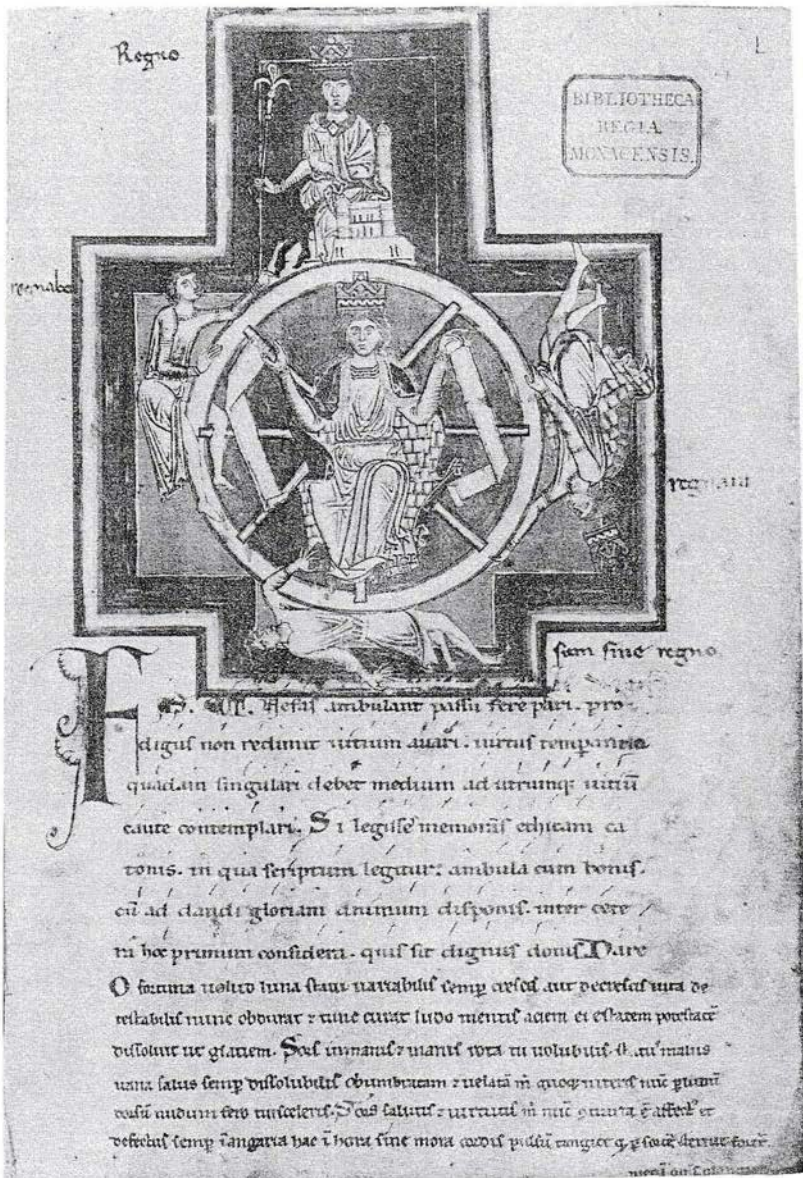 Regno
L
BIBLIOTHECA
REGIA
MONACENSIS.
regnabo
regnaui
sum sine regno
FAS. ET. Nefas ambulant passu fere pari. pro
digus non redimit uitium auari. uirtus temperantia
quadam singulari debet medium ad utrumq; uitiū
caute contemplari. Si legisse memoras ethicam ca
tonis. in qua scriptum legitur. ambula cum bonis.
cū ad dandi gloriam animum disponis. inter cete
ra hoc primum considera. quis sit dignus donis. Dare
O fortuna uelud luna statu uariabilis semp crescis aut decrescis uita de
testabilis nunc obdurat & tunc curat ludo mentis aciem egestatem potestatē
dissoluit ut glaciem. Sors inmanis & inanis rota tu uolubilis. st. tuſ malus
uana salus semp dissolubilis obumbratam & uelatā m quoq; niteris nūc p ludū
dorsū nudum fero tui sceleris. Sors salutis & uirtutis m nūc 9traria ē affect' et
defectus semp ī angaria hac ī hora sine mora cordis pulsū tangite q p sortē sternit fortē